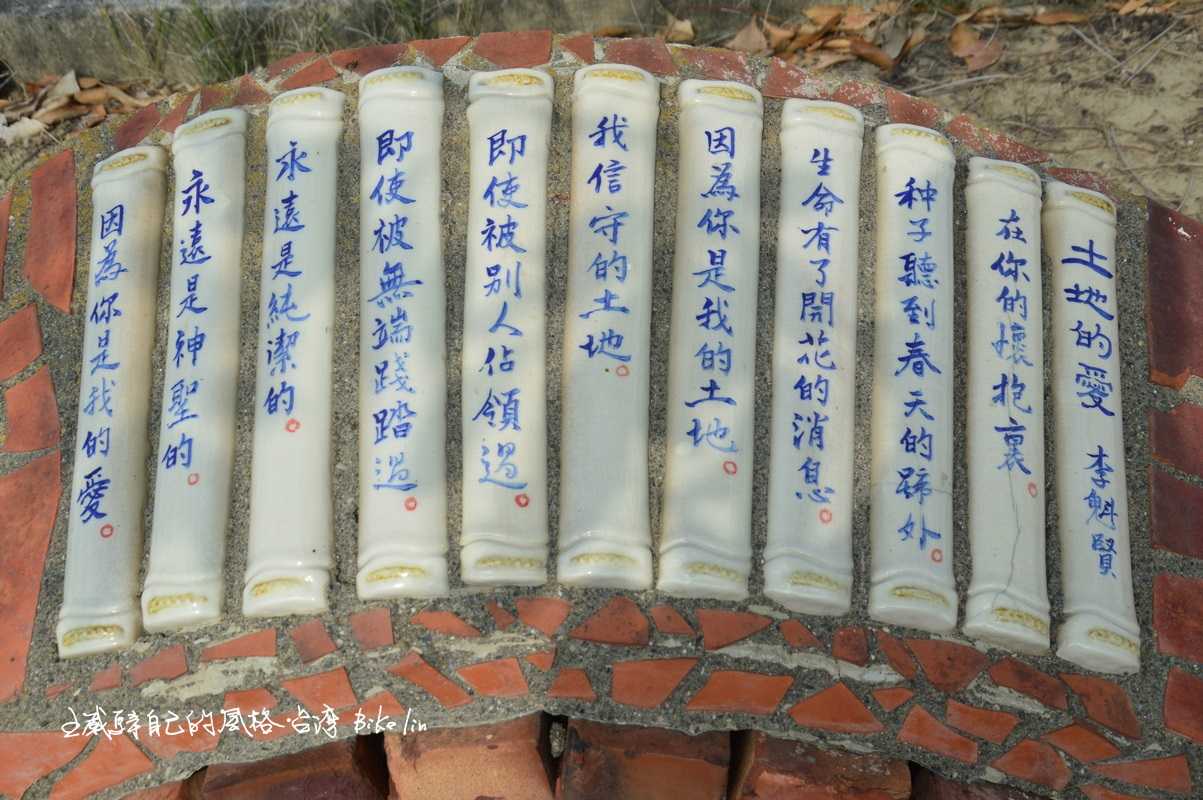 土地的愛 李魁賢
在你的懷抱裏。
种子聽到春天的蹄外。
生命有了開花的消息。
因為你是我的土地。
我信守的土地。
即使被別人佔領過。
即使被無端踐踏過。
永遠是純潔的。
永遠是神聖的。
因為你是我的愛。
騎自己的風格·台湾 Bike lin